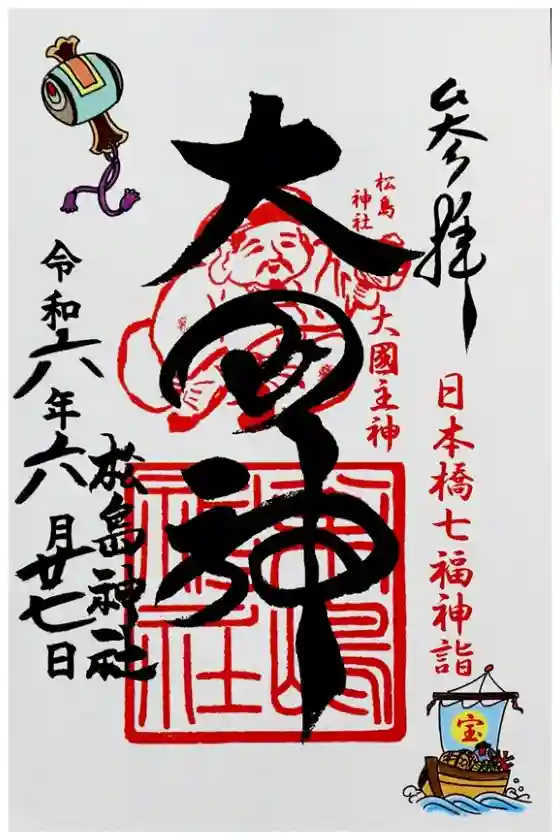 参拝
日本橋七福神詣
宝
松島
神社
大國主神
大國神
松島神社
松島神社
令和六年六月廿七日